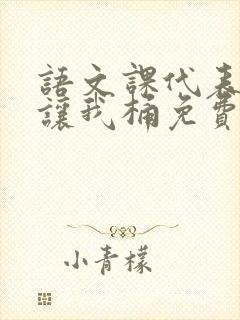 語文課代表
讓我桶免費
小青檬